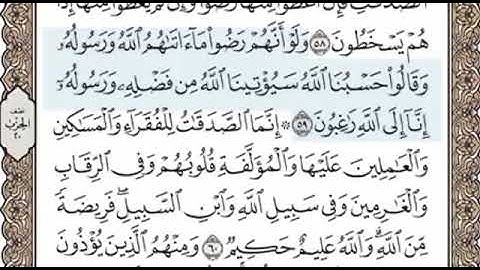 الصَّدَقَٰتِ فَإِنْ أُعْطُوا۟ مِنْهَا رَضُوا۟ وَإِن لَّمْ يُعْطَوْا۟ مِنْهَآ إِذَا
هُمْ يَسْخَطُونَ ٥٨ وَلَوْ أَنَّهُمْ رَضُوا۟ مَآ ءَاتَىٰهُمُ ٱللَّهُ وَرَسُولُهُۥ
وَقَالُوا۟ حَسْبُنَا ٱللَّهُ سَيُؤْتِينَا ٱللَّهُ مِن فَضْلِهِۦ وَرَسُولُهُۥٓ
إِنَّآ إِلَى ٱللَّهِ رَٰغِبُونَ ٥٩ ۞ إِنَّمَا ٱلصَّدَقَٰتُ لِلْفُقَرَآءِ وَٱلْمَسَٰكِينِ
وَٱلْعَٰمِلِينَ عَلَيْهَا وَٱلْمُؤَلَّفَةِ قُلُوبُهُمْ وَفِى ٱلرِّقَابِ
وَٱلْغَٰرِمِينَ وَفِى سَبِيلِ ٱللَّهِ وَٱبْنِ ٱلسَّبِيلِ ۖ فَرِيضَةً
مِّنَ ٱللَّهِ ۗ وَٱللَّهُ عَلِيمٌ حَكِيمٌ ٦٠ وَمِنْهُمُ ٱلَّذِينَ يُؤْذُونَ
نصف
الحزب
٢٠